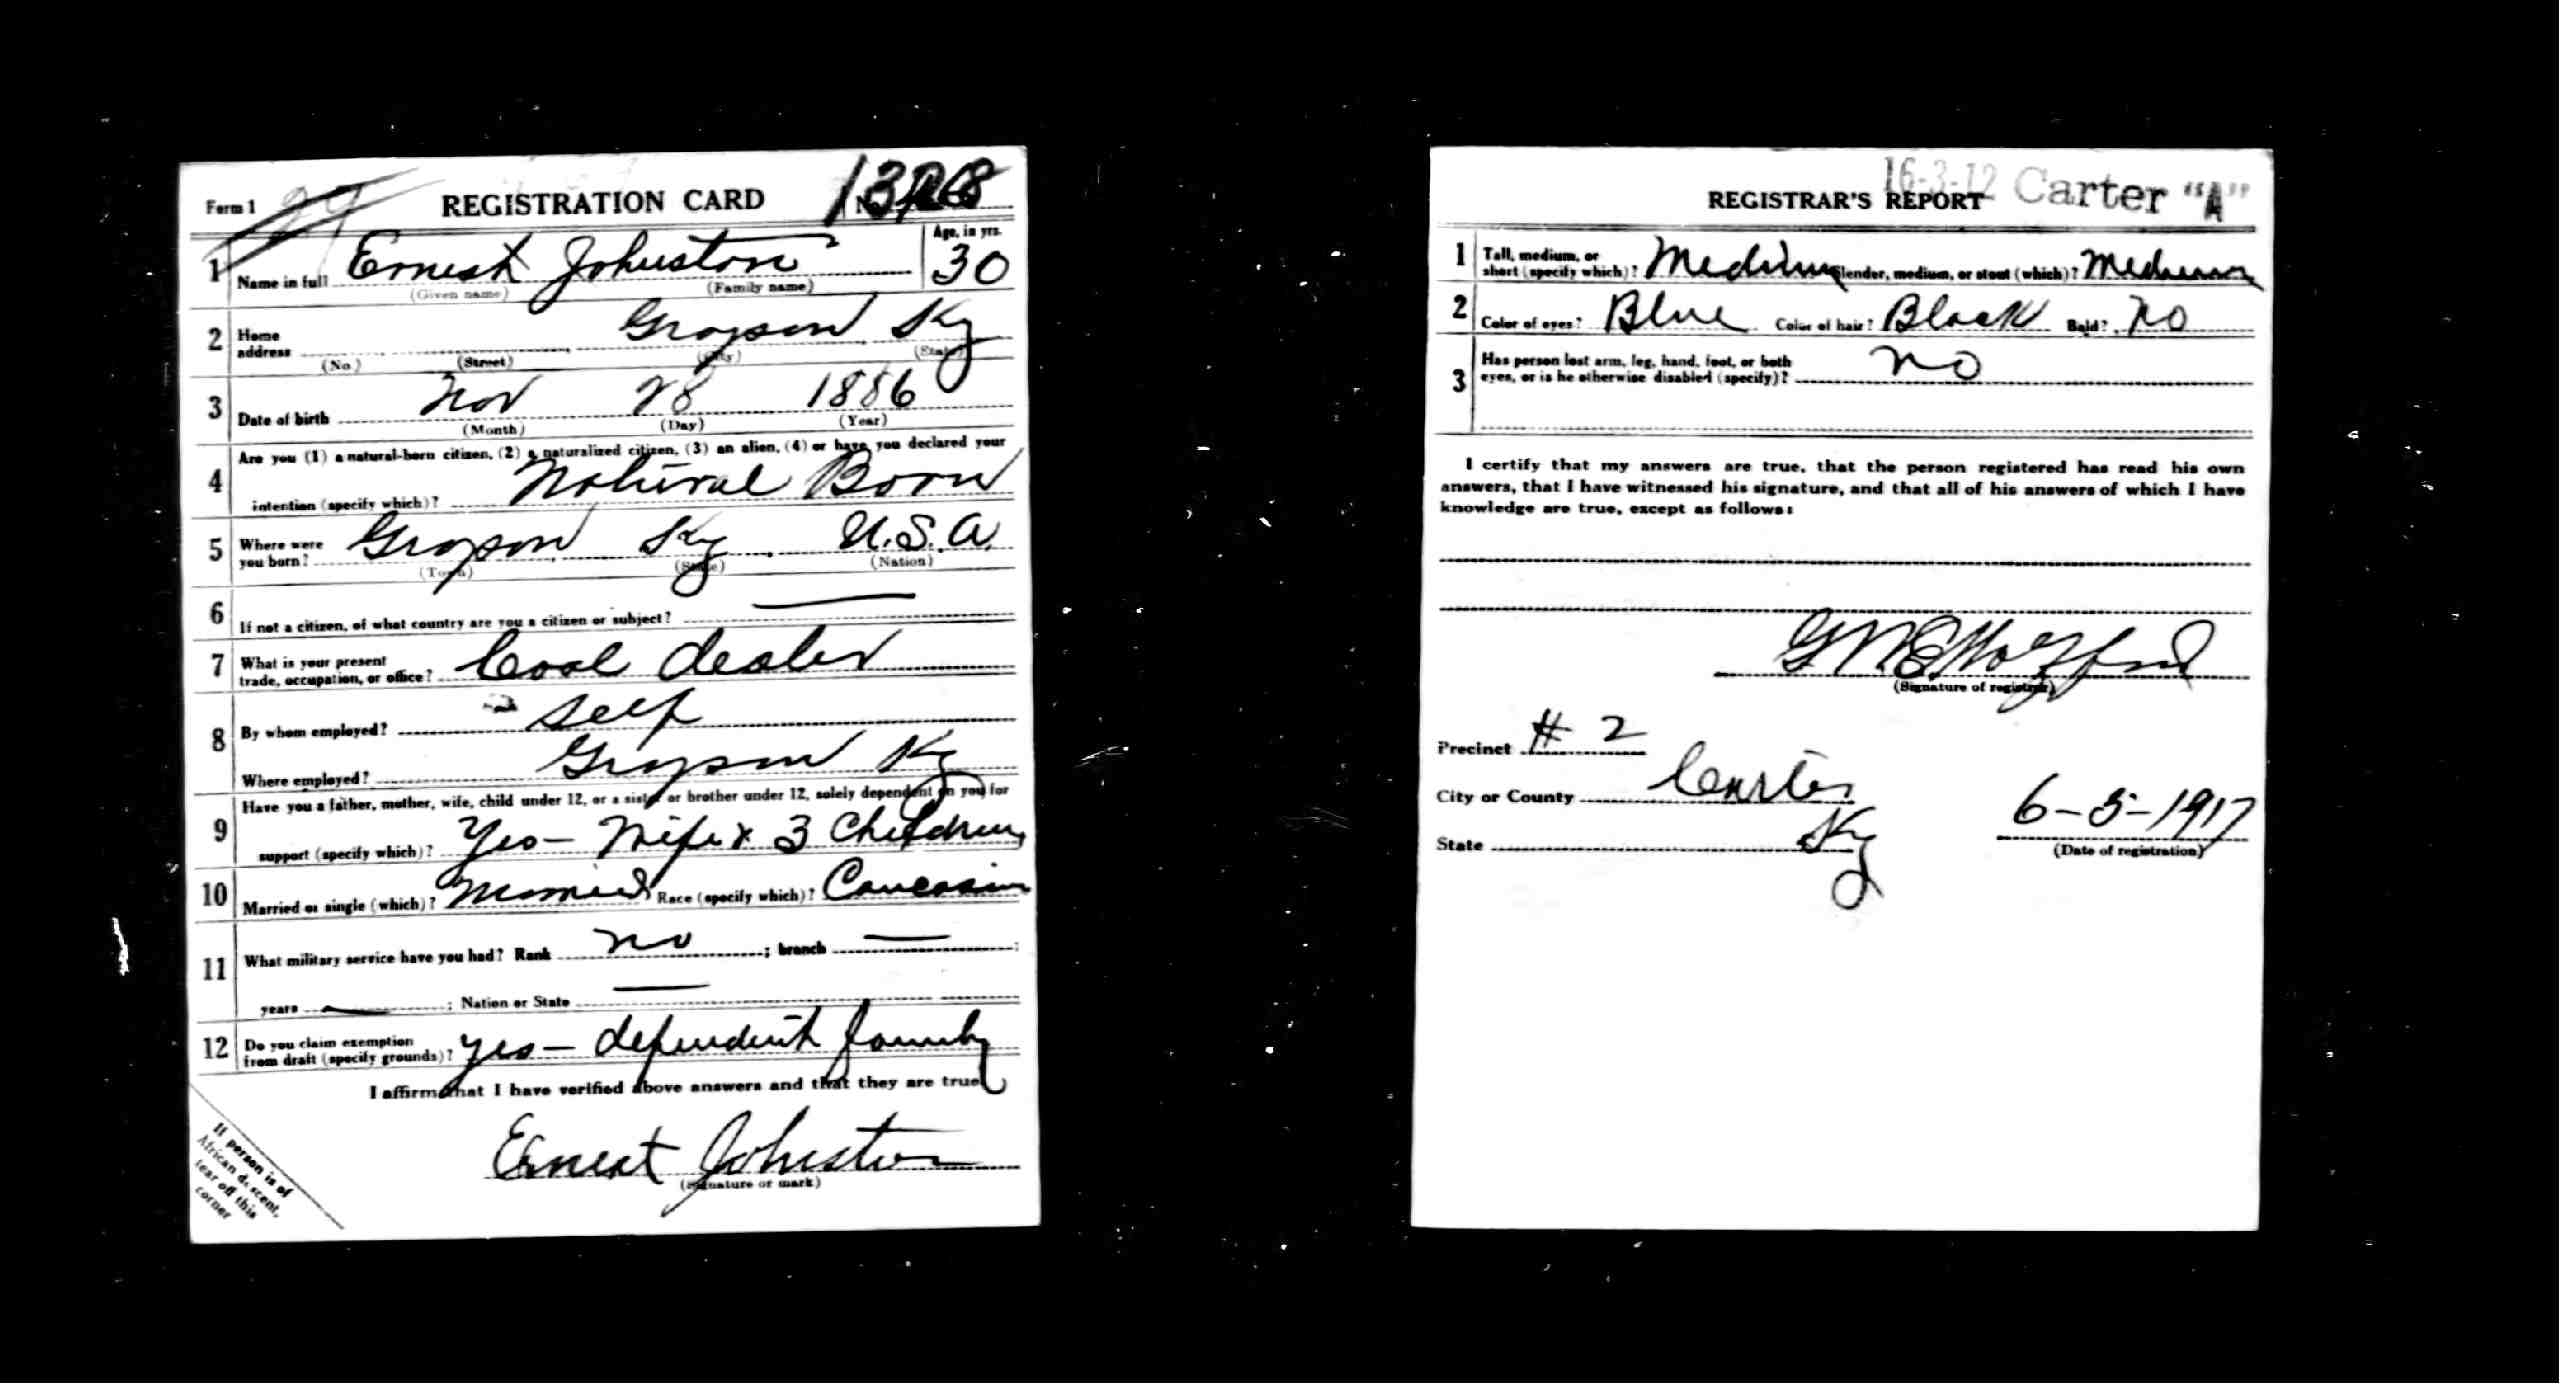 Form 1
REGISTRATION CARD
1 Name in full Ernest Johnston Age, in yrs. 30
(Given name) (Family name)
2 Home address Grayson Ky
(No.) (Street) (City) (State)
3 Date of birth Nov 28 1886
(Month) (Day) (Year)
4 Are you (1) a natural-born citizen, (2) a naturalized citizen, (3) an alien, (4) or have you declared your
intention (specify which)? Natural Born
5 Where were you born? Grayson Ky U.S.A.
(Town) (State) (Nation)
6 If not a citizen, of what country are you a citizen or subject? —
7 What is your present trade, occupation, or office? Coal dealer
8 By whom employed? Self
Where employed? Grayson Ky
9 Have you a father, mother, wife, child under 12, or a sister or brother under 12, solely dependent on you for
support (specify which)? Yes – Wife & 3 Children
10 Married or single (which)? Married Race (specify which)? Caucasian
11 What military service have you had? Rank no ; branch — ;
years — ; Nation or State —
12 Do you claim exemption from draft (specify grounds)? Yes – dependent family
I affirm that I have verified above answers and that they are true.
Ernest Johnston
(Signature or mark)
If person is of
African descent,
tear off this
corner
16-3-12 Carter "A"
REGISTRAR'S REPORT
1 Tall, medium, or short (specify which)? Medium Slender, medium, or stout (which)? Medium
2 Color of eyes? Blue Color of hair? Black Bald? No
3 Has person lost arm, leg, hand, foot, or both eyes, or is he otherwise disabled (specify)? no
I certify that my answers are true, that the person registered has read his own
answers, that I have witnessed his signature, and that all of his answers of which I have
knowledge are true, except as follows:
(Signature of registrar)
Precinct # 2
City or County Carter
State Ky
6-5-1917
(Date of registration)